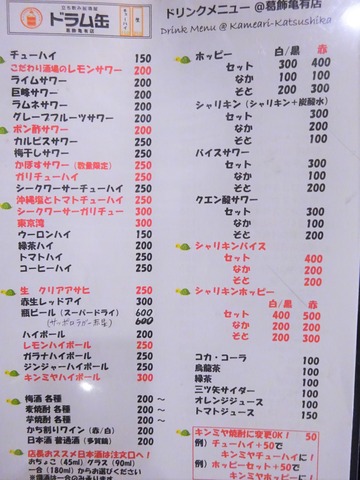 立ち飲み居酒屋
ドラム缶
葛飾亀有店
ドリンクメニュー @葛飾亀有店
Drink Menu @ Kameari-Katsushika
チューハイ 150
こだわり酒場のレモンサワー 200
ライムサワー 200
巨峰サワー 200
ラムネサワー 200
グレープフルーツサワー 200
ポン酢サワー 200
カルピスサワー 250
梅干しサワー 250
かぼすサワー (数量限定) 250
ガリチューハイ 250
シークワーサーチューハイ 250
沖縄塩とトマトチューハイ 250
シークワーサーガリチュー 300
東京湾 300
ウーロンハイ 200
緑茶ハイ 200
トマトハイ 250
コーヒーハイ 250
生 クリアアサヒ 250
赤生レッドアイ 300
瓶ビール (スーパードライ) 600
ハイボール 200
レモンハイボール 250
ガラナハイボール 250
ジンジャーハイボール 250
キンミヤハイボール 300
梅酒 各種 200 ~
麦焼酎 各種 200 ~
芋焼酎 各種 200 ~
かち割りワイン (赤/白) 200
日本酒 普通酒 (多賀鶴) 200
店長おススメ日本酒は注文口へ!
おちょこ (45ml) グラス (90ml)
一合 (180ml) からお選びください
ホッピー 白/黒 赤
セット 300 400
なか 100 100
そと 200 300
シャリキン (シャリキン+炭酸水)
セット 300
なか 200
そと 100
バイスサワー
セット 300
なか 100
そと 200
クエン酸サワー
セット 300
なか 100
そと 200
シャリキンバイス
セット 400
なか 200
そと 200
シャリキンホッピー 白/黒 赤
セット 400 500
なか 200 200
そと 200 300
コカ・コーラ 100
烏龍茶 100
緑茶 100
三ツ矢サイダー 100
オレンジジュース 100
トマトジュース 150
キンミヤ焼酎に変更OK! 50
例) チューハイ+50で
キンミヤチューハイに!
例) ホッピーセット+50で
キンミヤホッピーに!